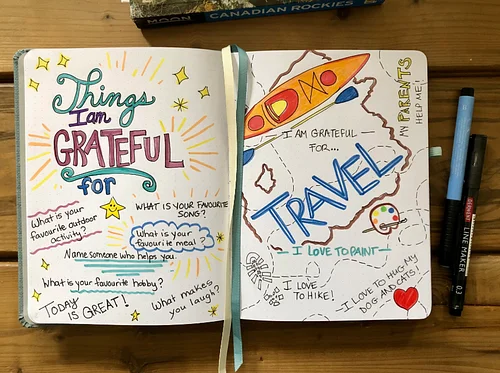 MOON
CANADIAN ROCKIES
Things
I am
GRATEFUL
for
What is your
favourite outdoor
activity?
WHAT IS YOUR FAVOURITE
SONG?
What is your
favourite meal?
Name someone who helps you.
What is your favourite hobby?
TODAY
IS GREAT!
What makes
you laugh?
I AM GRATEFUL
FOR...
TRAVEL
MY PARENTS
HELP ME!
I LOVE TO PAINT
I LOVE
TO HIKE!
I LOVE TO HUG MY
DOG AND CATS!
LINE MAKER
0.3